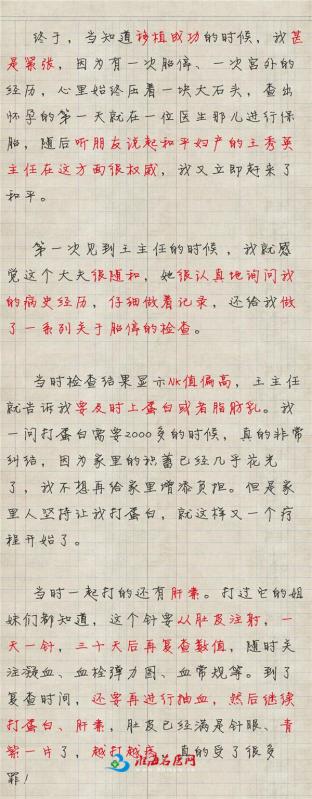 终于，当知道移植成功的时候，我甚
是紧张，因为有一次胎停、一次宫外的
经历，心里始终压着一块大石头，查出
怀孕的第一天就在一位医生那儿进行保
胎，随后听朋友说起和平妇产的王秀英
主任在这方面很权威，我又立即赶来了
和平。
第一次见到王主任的时候，我就感
觉这个大夫很随和，她很认真地询问我
的病史经历，仔细做着记录，还给我做
了一系列关于胎停的检查。
当时检查结果显示NK值偏高，王主任
就告诉我要及时上蛋白或者脂肪乳。我
一问打蛋白需要2000多的时候，真的非常
纠结，因为家里的积蓄已经几乎花光
了，我不想再给家里增添负担。但是家
里人坚持让我打蛋白，就这样又一个疗
程开始了。
当时一起打的还有肝素。打过它的姐
妹们都知道，这个针要从肚皮注射，一
天一针，三十天后再复查数值，随时关
注凝血、血栓弹力图、血常规等。到了
复查时间，还要再进行抽血，然后继续
打蛋白、肝素，肚皮已经满是针眼、青
紫一片了，越打越疼，真的受了很多
罪！
淮海名医网